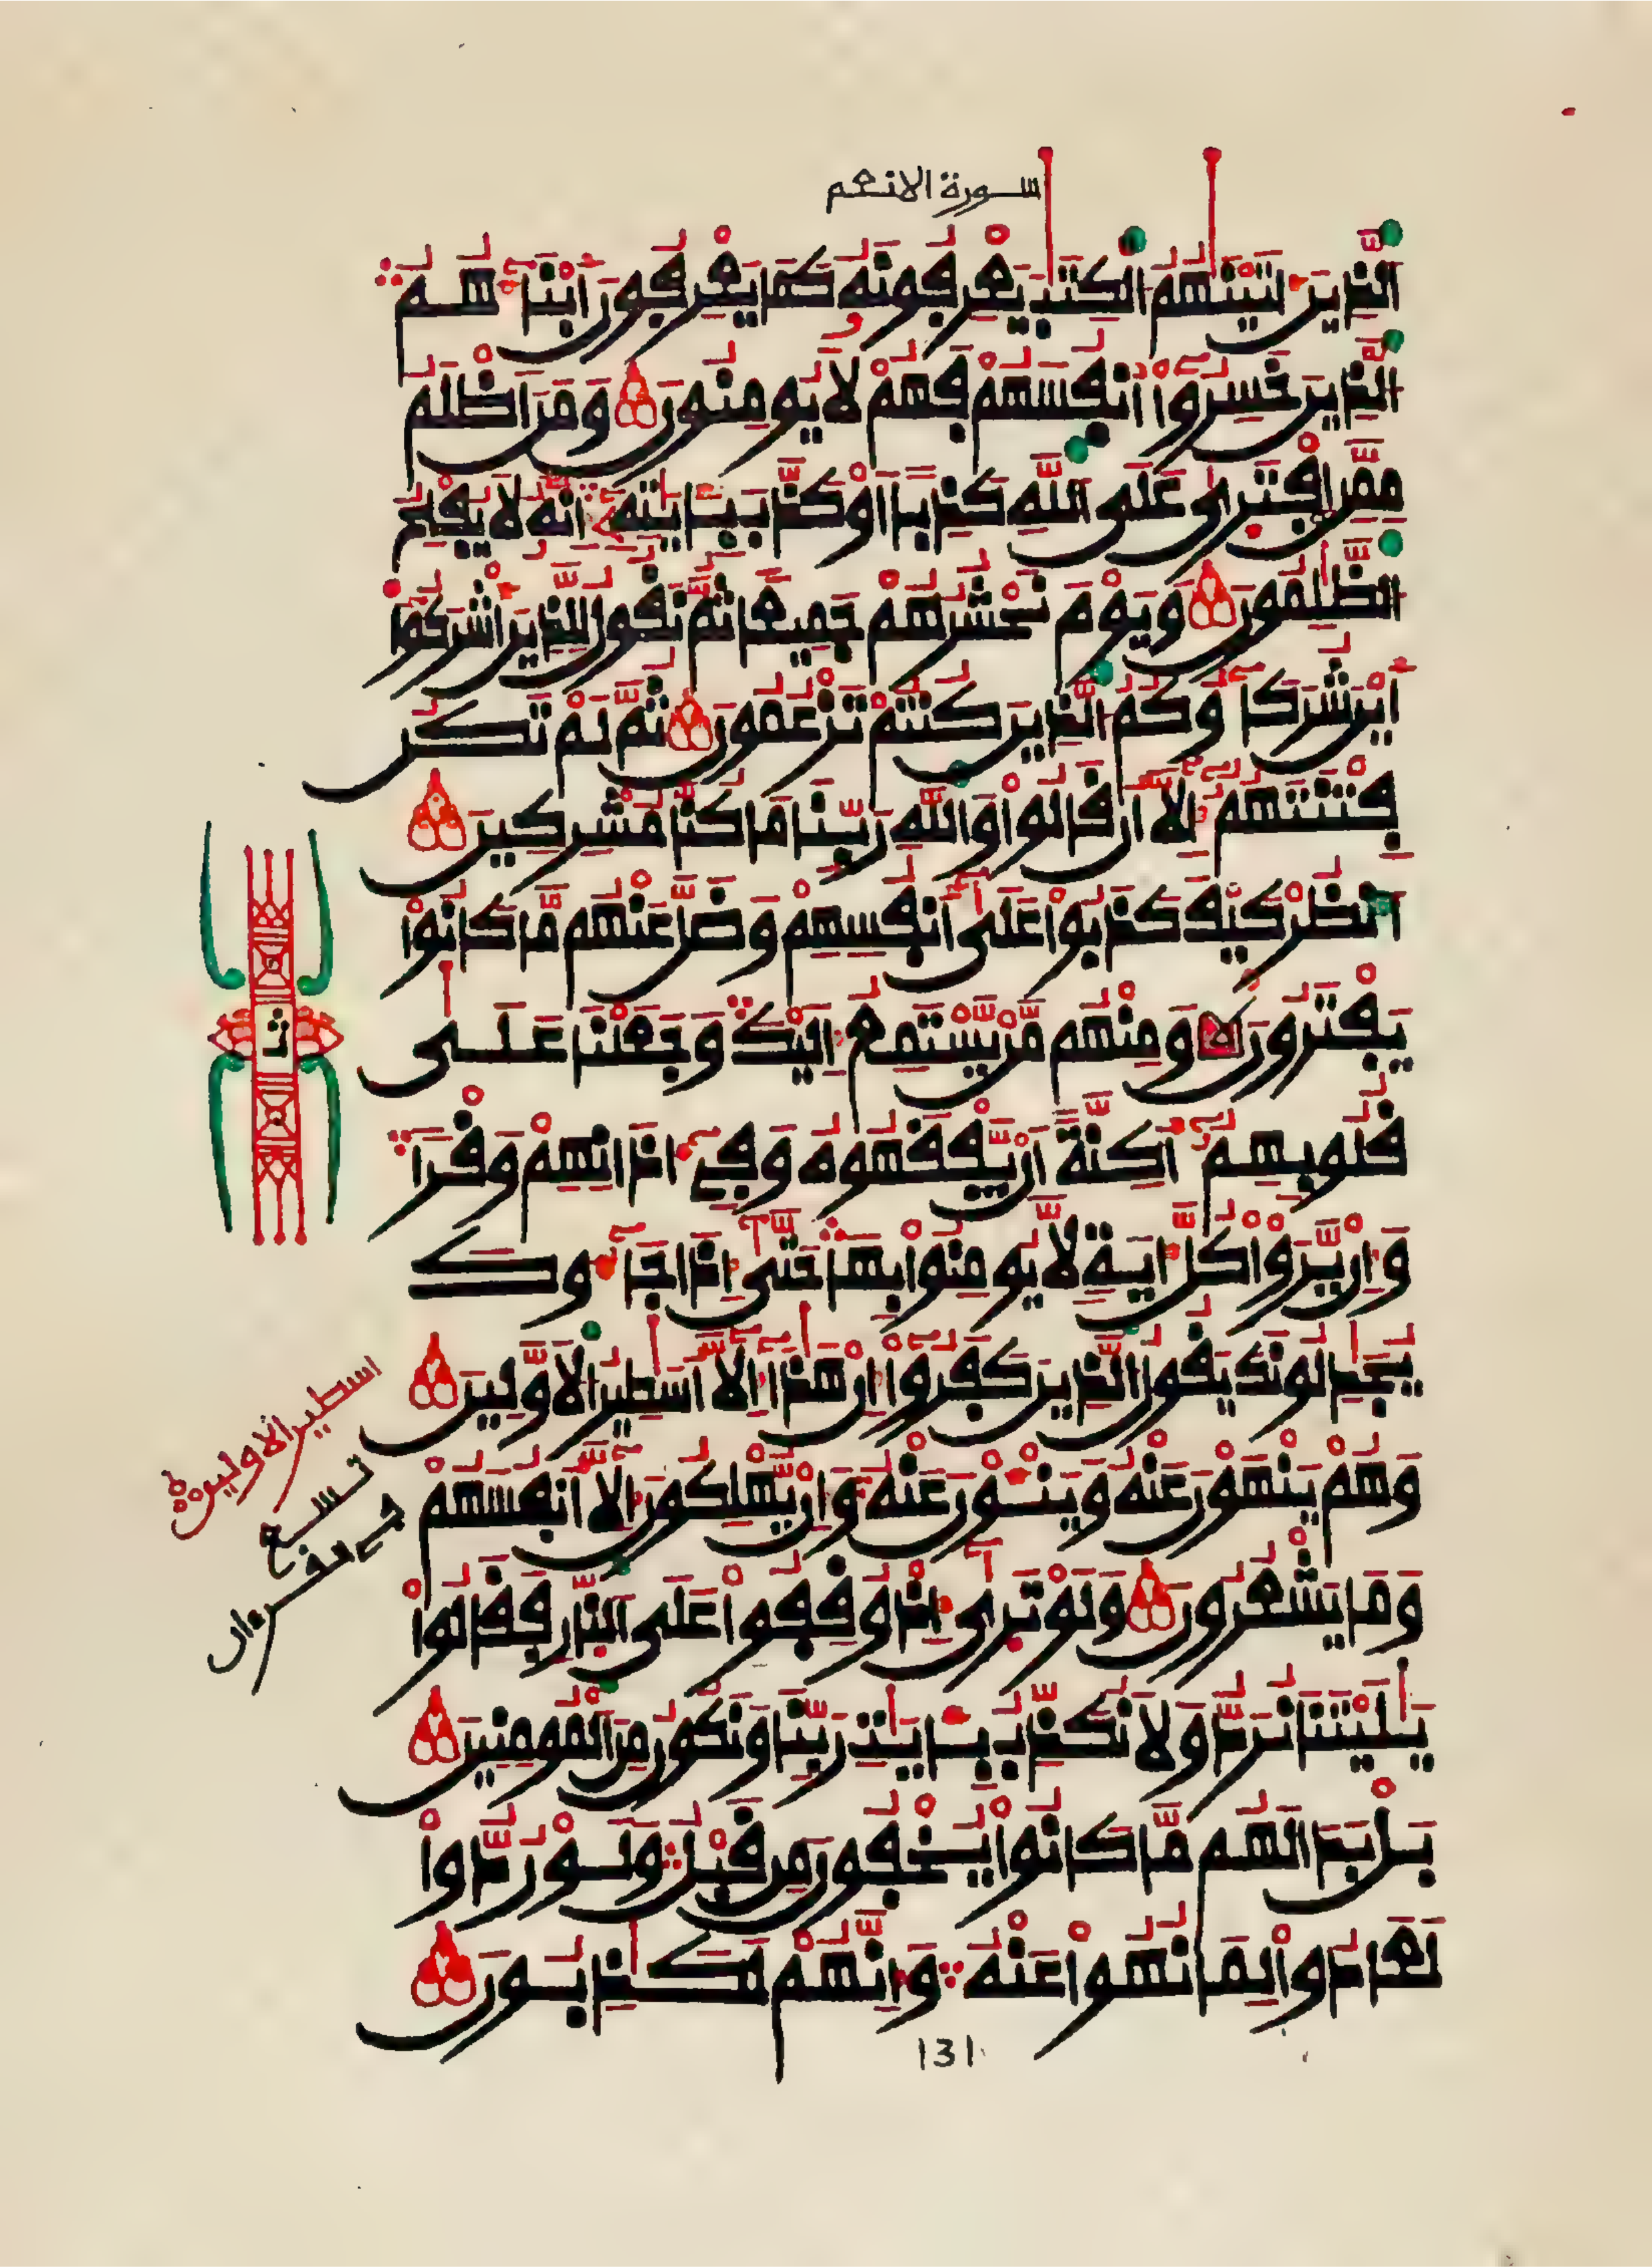 سورة الانعم
الذِينَ ءَاتَيْنَٰهُمُ الْكِتَٰبَ يَعْرِفُونَهُۥ كَمَا يَعْرِفُونَ أَبْنَآءَهُم
الذِينَ خَسِرُوٓاْ أَنفُسَهُمْ فَهُمْ لَا يُومِنُونَ وَمَنَ اَظْلَمُ
مِمَّنِ اِفْتَر۪ىٰ عَلَى اللَّهِ كَذِباً اَوْ كَذَّبَ بِـَٔايَٰتِهِۦٓ إِنَّهُۥ لَا يُفْلِحُ
الظَّٰلِمُونَ وَيَوْمَ نَحْشُرُهُمْ جَمِيعاً ثُمَّ نَقُولُ لِلذِينَ أَشْرَكُوٓاْ
أَيْنَ شُرَكَآؤُكُمُ الذِينَ كُنتُمْ تَزْعُمُونَ ثُمَّ لَمْ تَكُن
فِتْنَتَهُمُۥٓ إِلَّآ أَن قَالُواْ وَاللَّهِ رَبِّنَا مَا كُنَّا مُشْرِكِينَ
اَنظُرْ كَيْفَ كَذَبُواْ عَلَىٰٓ أَنفُسِهِمْ وَضَلَّ عَنْهُم مَّا كَانُواْ
يَفْتَرُونَ وَمِنْهُم مَّنْ يَّسْتَمِعُ إِلَيْكَ وَجَعَلْنَا عَلَىٰ
قُلُوبِهِمُۥٓ أَكِنَّةً اَنْ يَّفْقَهُوهُ وَفِےٓ ءَاذَانِهِمْ وَقْراً
وَإِنْ يَّرَوْاْ كُلَّ ءَايَةٍ لَّا يُومِنُواْ بِهَا حَتَّىٰٓ إِذَا جَآءُوكَ
يُجَٰدِلُونَكَ يَقُولُ الذِينَ كَفَرُوٓاْ إِنْ هَٰذَآ إِلَّآ أَسَٰطِيرُ الْأَوَّلِينَ
وَهُمْ يَنْهَوْنَ عَنْهُ وَيَنْـَٔوْنَ عَنْهُ وَإِنْ يُّهْلِكُونَ إِلَّآ أَنفُسَهُمْ
وَمَا يَشْعُرُونَ وَلَوْ تَر۪ىٰٓ إِذْ وُقِفُواْ عَلَى النّ۪ارِ فَقَالُواْ
يَٰلَيْتَنَا نُرَدُّ وَلَا نُكَذِّبُ بِـَٔايَٰتِ رَبِّنَا وَنَكُونُ مِنَ الْمُومِنِينَ
بَلْ بَدَا لَهُم مَّا كَانُواْ يُخْفُونَ مِن قَبْلُ وَلَوْ رُدُّواْ
لَعَادُواْ لِمَا نُهُواْ عَنْهُ وَإِنَّهُمْ لَكَٰذِبُونَ
ثا
اسطير الاولين
تسع
في القرءان
131